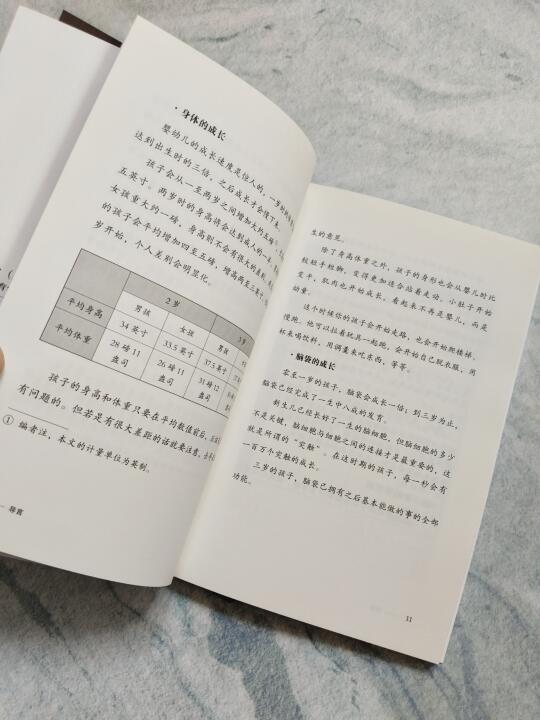 · 身体的成长
婴幼儿的成长速度是惊人的，一岁时
达到出生时的三倍，之后成长才会慢下来。
孩子会从一至两岁之间增加大约五磅
五英寸。两岁时的身高将会达到成人的一
女孩重大约一磅，身高则不会有很大的差别。
的孩子会平均增加四至五磅，增高两至三英寸。
岁开始，个人差别会明显化。
2岁
男孩
女孩
男孩
平均身高
34 英寸
33.5 英寸
37.5 英寸
平均体重
28 磅 11
盎司
26 磅 11
盎司
31 磅 12
盎司
孩子的身高和体重只要在平均数值前后，
有问题的。但若是有很大差距的话就要注意，
① 编者注，本文的计量单位为英制。
导言
生的意见。
除了身高体重之外，孩子的身形也会从婴儿时比
较短手短脚，变得更加适合站着走动。小肚子开始
变平，肌肉也开始成长，看起来不再是婴儿，而是
幼童。
这个时候候的孩子会开始走路，也会开始爬楼梯、
慢跑。他可以拉着玩具一起跑，会开始自己脱衣服，用
杯来喝饮料，用调羹来吃东西，等等。
· 脑袋的成长
零至一岁的孩子，脑袋会成长一倍；到三岁为止，
脑袋已经完成了一生中八成的发育。
新生儿已经长好了一生的脑细胞，但脑细胞的多少
不是关键，脑细胞与细胞之间的连接才是最重要的，这
就是所谓的“突触”。在这时期的孩子，每一秒会有
一百万个突触的成长。
三岁的孩子，脑袋已拥有之后基本能做的事的全部
功能。
11